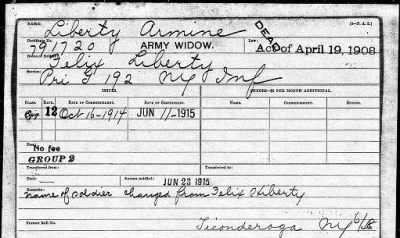 Liberty Armine
NAME.
(3-785.)
Certificate No.
791720 ARMY WIDOW. DEAD
Law:
Act of April 19, 1908
Name of Soldier:
Felix Liberty
Service:
Pri G 192 NY Inf
ISSUES.
CLASS. RATE. DATE OF COMMENCEMENT. DATE OF CERTIFICATE. RATE. DATE OF COMMENCEMENT. DATE OF CERTIFICATE.
12 Oct 16-1914 JUN 11-1915
Fee:
No fee
GROUP 2
Transferred from: Transferred to:
Died: Bureau notified:
JUN 23 1915
Remarks:
name of soldier changed from Felix Liberty
Ticonderoga NY
Former Roll No.